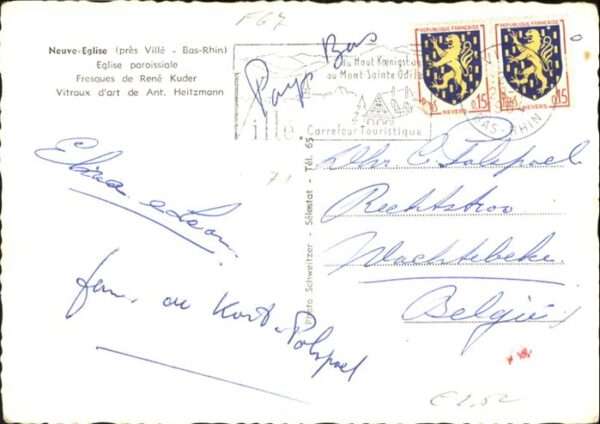 F67
Neuve-Eglise (près Villé - Bas-Rhin)
Eglise paroissiale
Fresques de René Kuder
Vitraux d'art de Ant. Heitzmann
Pays Bas
du Haut Kœnigsbourg
au Mont-Sainte Odile
Villé
Carrefour Touristique
REPUBLIQUE FRANÇAISE
0,15
NEVERS
REPUBLIQUE FRANÇAISE
0,15
NEVERS
BAS-RHIN
Photo Schweitzer - Sélestat - Tél. 65
Elza e Leon
fam. de Kort-Polspoel
Dhr C. Polspoel
Rechtstroo
Wachtebeke
België
€ 2,52